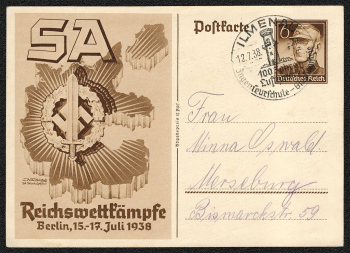 SA
Reichswettkämpfe
Berlin, 15.-17. Juli 1938
Postkarte
ILMENAU
12.7.38
100
Ingenieurschule
6
Deutsches Reich
Frau
Minna Oswald
Merseburg
Bismarckstr. 59